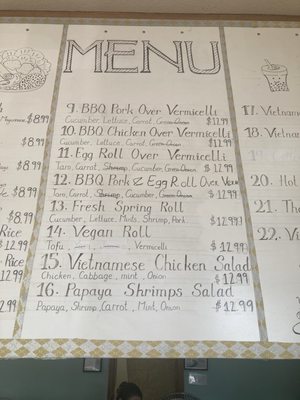 MENU
9. BBQ Pork Over Vermicelli
Cucumber, Lettuce, Carrot, Green Onion $12.99
10. BBQ Chicken Over Vermicelli
Cucumber, Lettuce, Carrot, Green Onion $12.99
11. Egg Roll Over Vermicelli
Taro, Carrot, Shrimp, Cucumber, Green Onion $12.99
12. BBQ Pork & Egg Roll Over Verm
Taro, Carrot, Shrimp, Cucumber, Green Onion $12.99
13. Fresh Spring Roll
Cucumber, Lettuce, Mints, Shrimp, Pork $12.99
14. Vegan Roll
Tofu, Vermicelli $12.99
15. Vietnamese Chicken Salad
Chicken, Cabbage, mint, Onion $12.99
16. Papaya Shrimps Salad
Papaya, Shrimp, Carrot, Mint, Onion $12.99
$8.99
$8.99
$8.99
$8.99
$8.99
Rice
$12.99
Rice
12.99
2.99
17. Vietnam
18. Vietnam
19.
20. Hot
21. Th
22. Vi